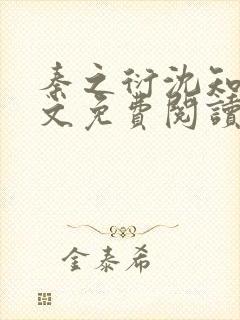 秦之衍沈知
文免費閱讀
金泰希